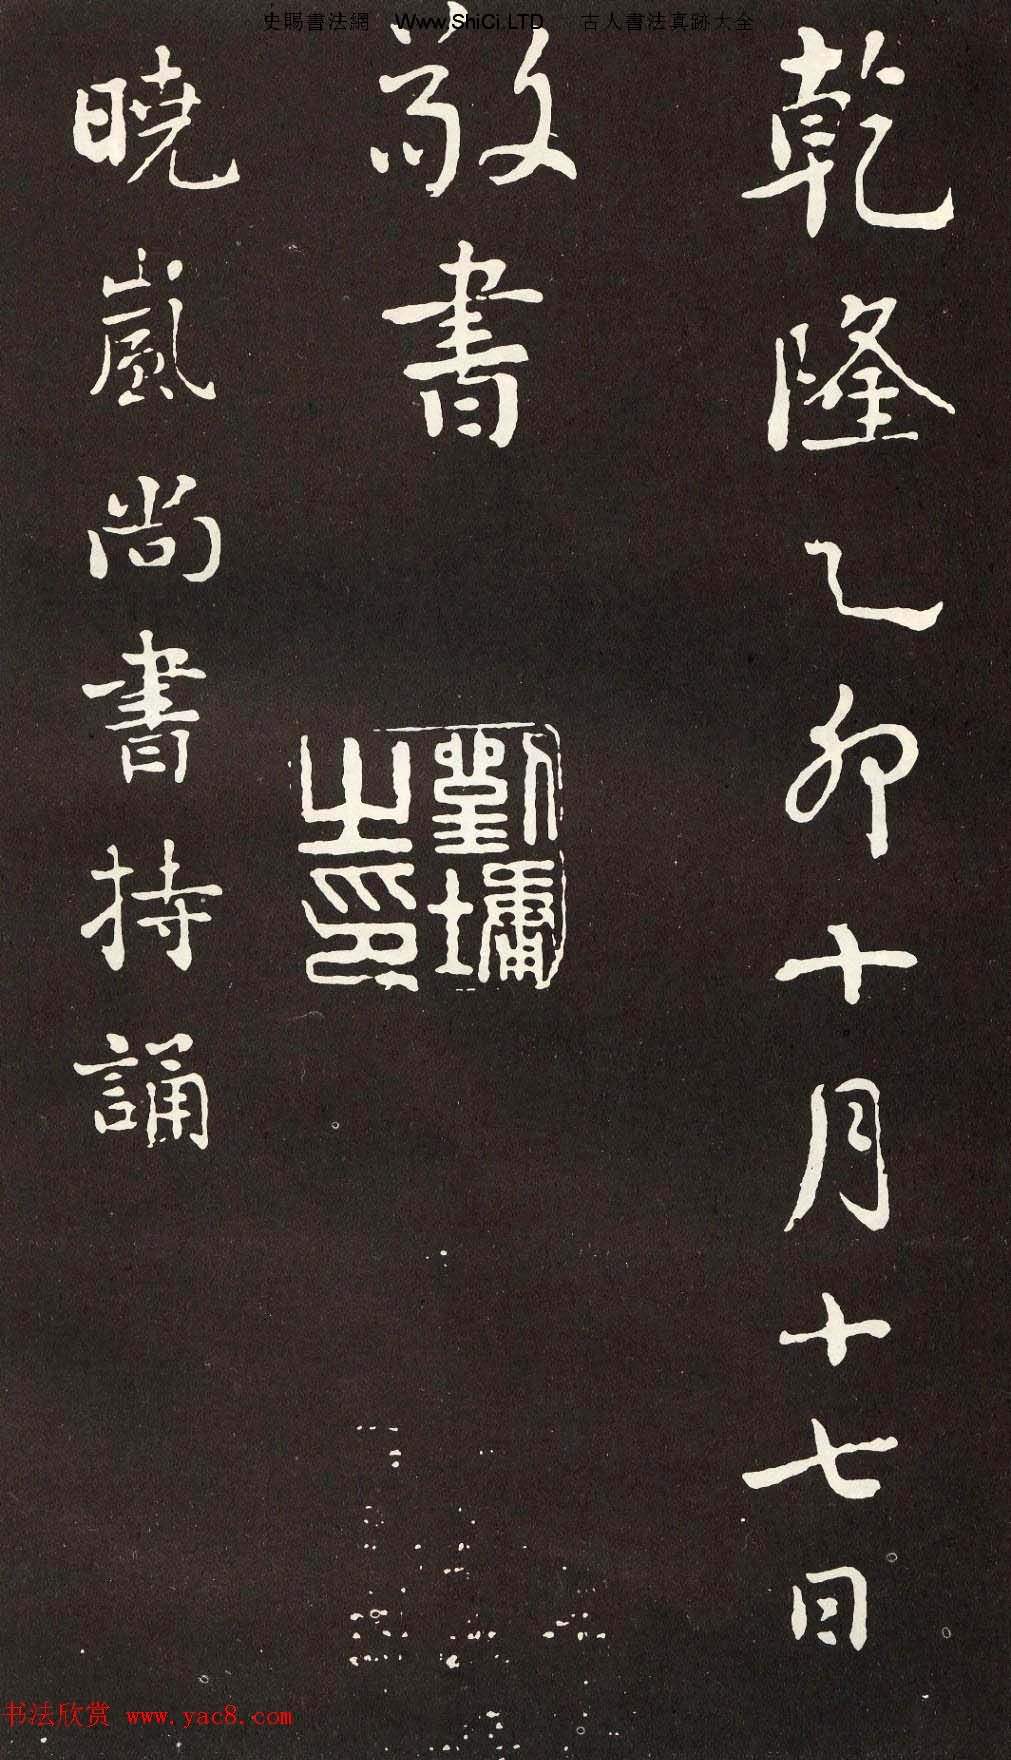 史賜書法網 Www.ShiCi.LTD 古人書法真跡大全
乾隆乙卯十月十七日
敬書
劉墉之印
曉嵐尚書持誦
书法欣赏 www.yac8.com